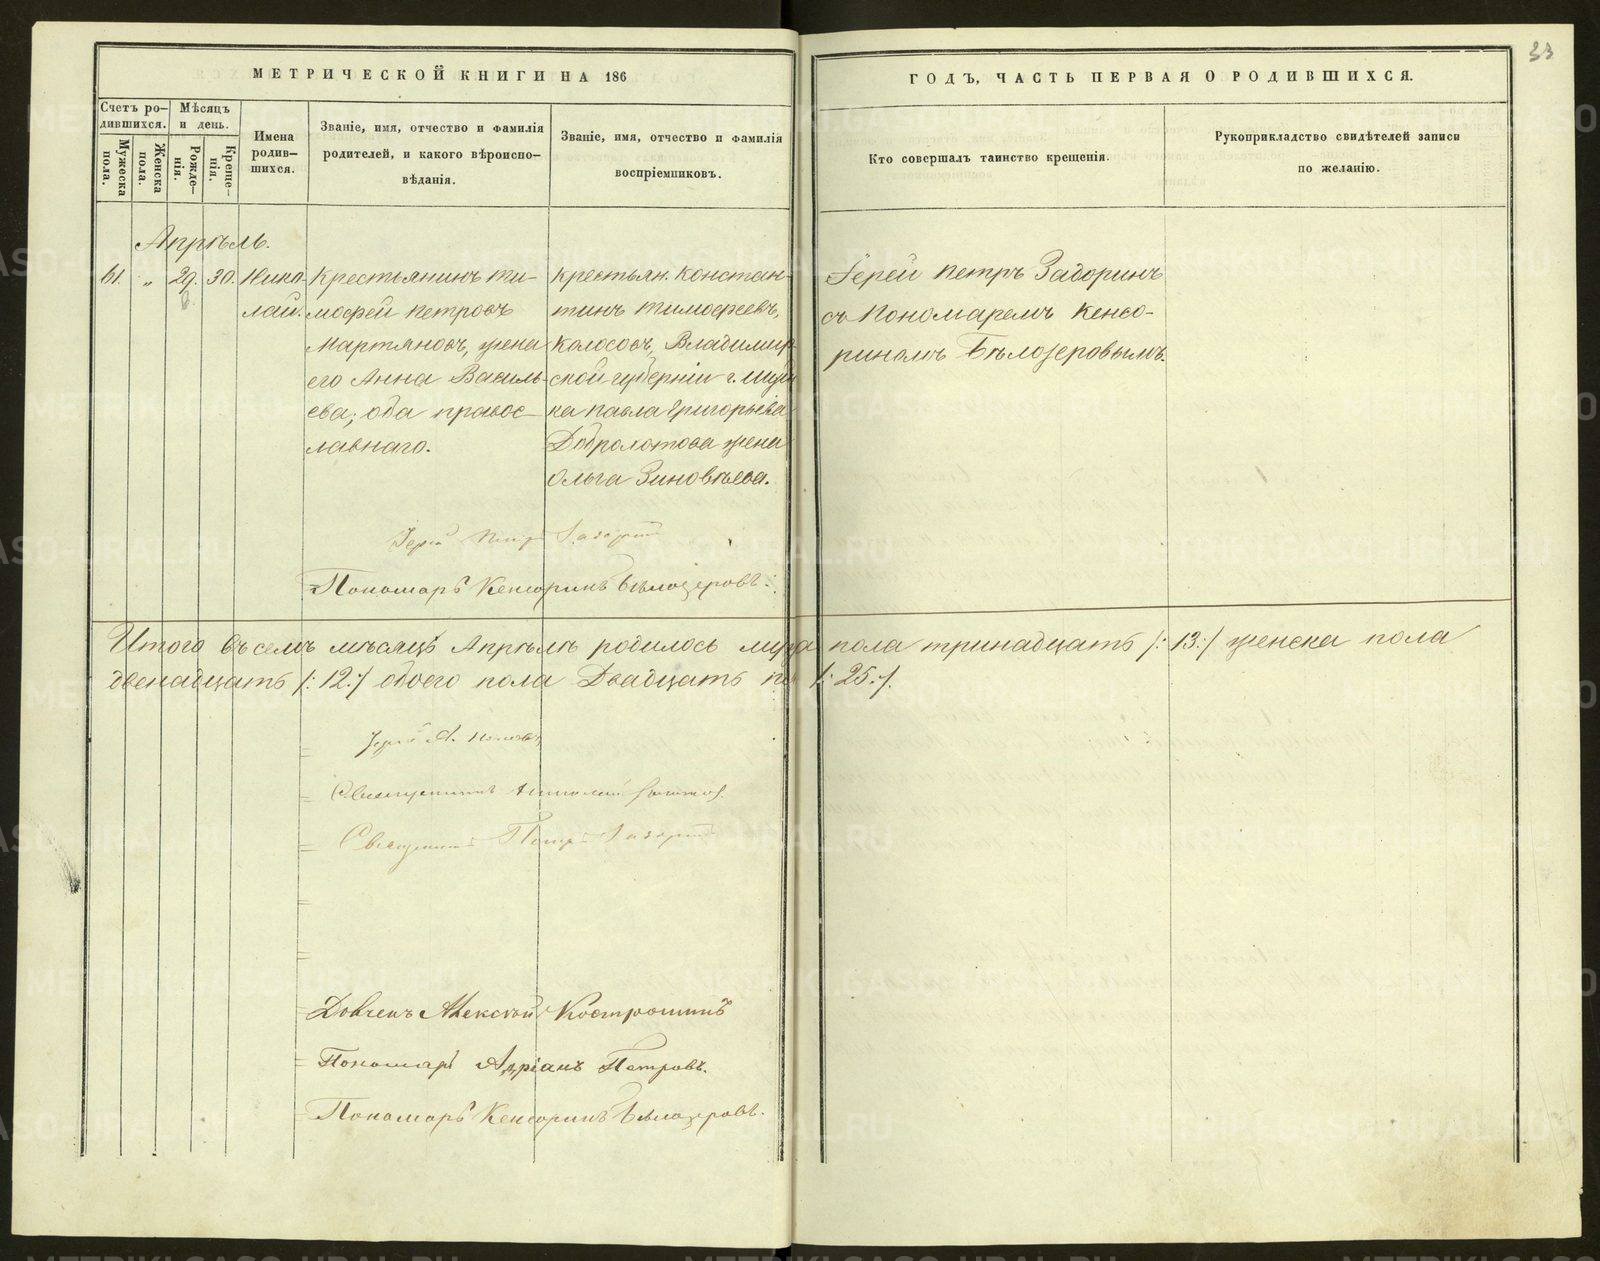 33
МЕТРИЧЕСКОЙ КНИГИ НА 186
ГОДЪ, ЧАСТЬ ПЕРВАЯ О РОДИВШИХСЯ.
Счетъ ро-
дившихся.
Мужеска
пола.
Женска
пола.
Мѣсяцъ
и день.
Рожде-
нія.
Креще-
нія.
Имена
родив-
шихся.
Званіе, имя, отчество и фамилія
родителей, и какого вѣроиспо-
вѣданія.
Званіе, имя, отчество и фамилія
воспріемниковъ.
Кто совершалъ таинство крещенія.
Рукоприкладство свидѣтелей записи
по желанію.
Апрѣль.
61. „ 29. 30. Нико-
лай.
Крестьянинъ Ти-
мофей Петровъ
Мартяновъ, жена
его Анна Василь-
ева; оба правос-
лавнаго.
Крестьян. Констан-
тинъ Тимофеевъ,
Колосовъ, Владимир-
ской губерніи г.
Павла Григорьева
жена
Ольга Зиновьева.
Іерей Петръ Задоринъ
съ Пономаремъ Кенсо-
риномъ Бѣлозеровымъ.
Іерей Петр Задорин
Пономарь Кенсоринъ Бѣлозеровъ.
Итого въ семъ мѣсяцѣ Апрѣлѣ родилось мужа пола тринадцать /: 13:/ женска пола
двенадцать /: 12:/ обоего пола Двадцать /: 25:/.
Іерей А. Попов
Священникъ Николай
Священникъ Петръ Задорин
Алексѣй Костроминъ
Пономарь Адріанъ Петровъ.
Пономарь Кенсоринъ Бѣлозеровъ.
METRIKI.GASO-URAL.RU